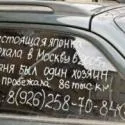 настоящая японка
ехала в Москву в
меня был один хозяин
пробежала 86 тыс км
8(926)258-70-84